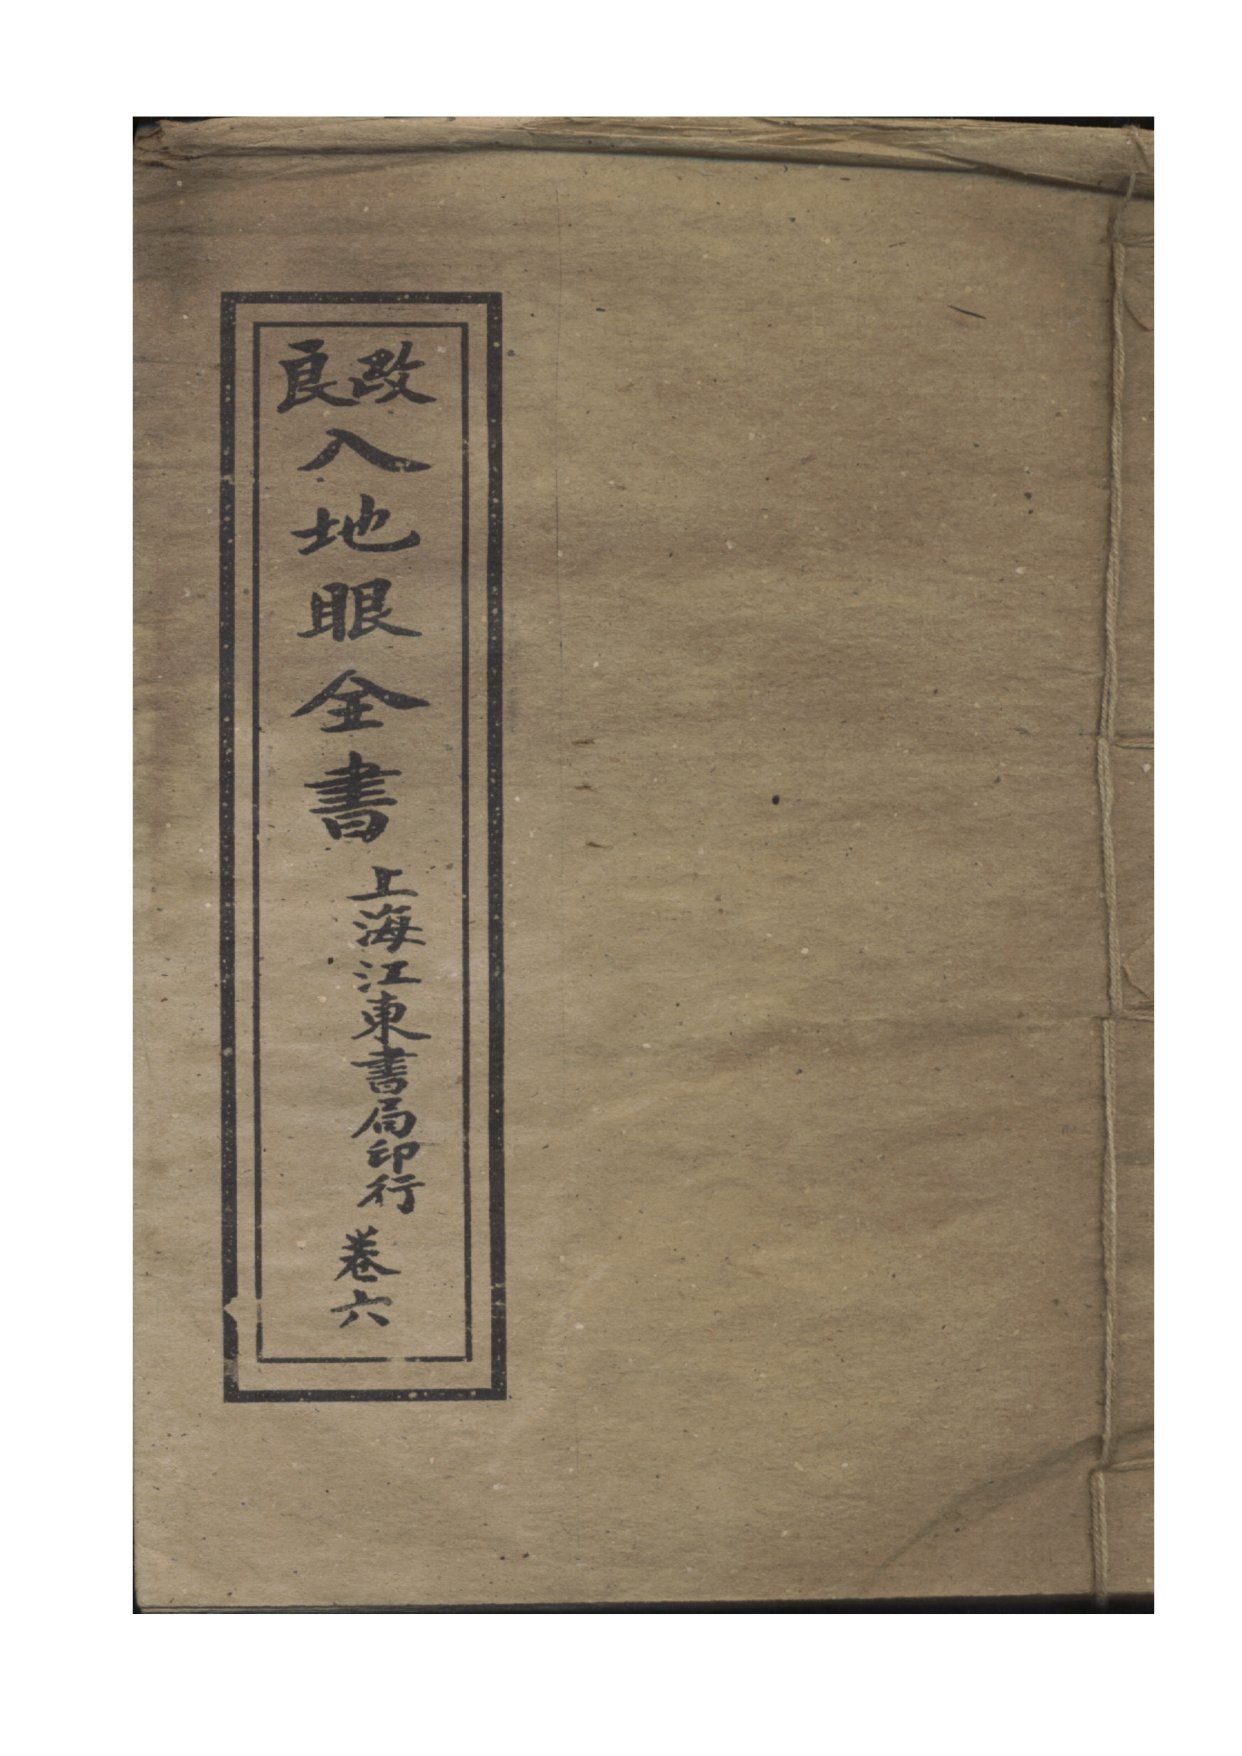 改良
入地眼全書
上海江東書局印行
卷六